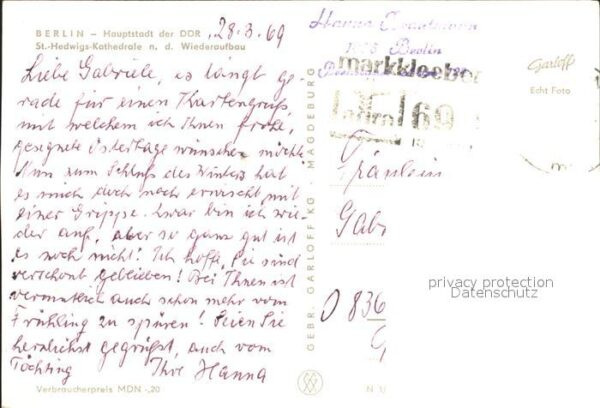 BERLIN – Hauptstadt der DDR
28.3.69
St.-Hedwigs-Kathedrale n. d. Wiederaufbau
Liebe Gabriele, es langt ge-
rade für einen Kartengruß,
mit welchem ich Ihnen frohe,
gesegnete Ostertage wünschen möchte.
Nun zum Schluß des Winters hat
es mich doch noch erwischt mit
einer Grippe. Zwar bin ich wie-
der auf, aber so ganz gut ist
es noch nicht! Ich hoffe, Sie sind
verschont geblieben! Bei Ihnen ist
vermutlich auch schon mehr vom
Frühling zu spüren! Seien Sie
herzlichst gegrüßt, auch vom
Töchting Ihre Hanna
Verbraucherpreis MDN -,20
GEBR. GARLOFF KG · MAGDEBURG
Hanna
Berlin
markkleeberg
69
Garloff
Echt Foto
Fräulein
Gabr
O 836
privacy protection
Datenschutz